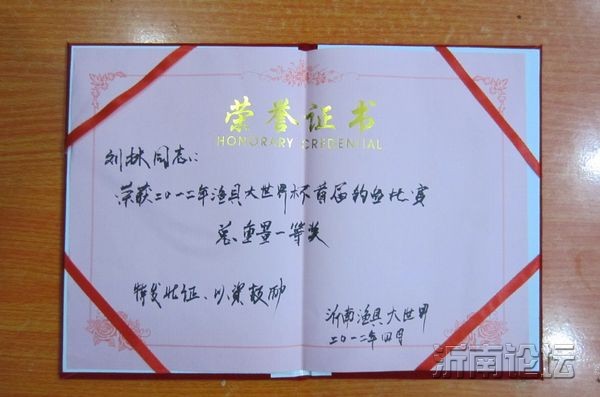 荣誉证书
HONORARY CREDENTIAL
刘林同志:
荣获二〇一二年渔具大世界杯首届钓鱼比赛
总重量一等奖
特发此证、以资鼓励
沂南渔具大世界
二〇一二年四月
沂南论坛